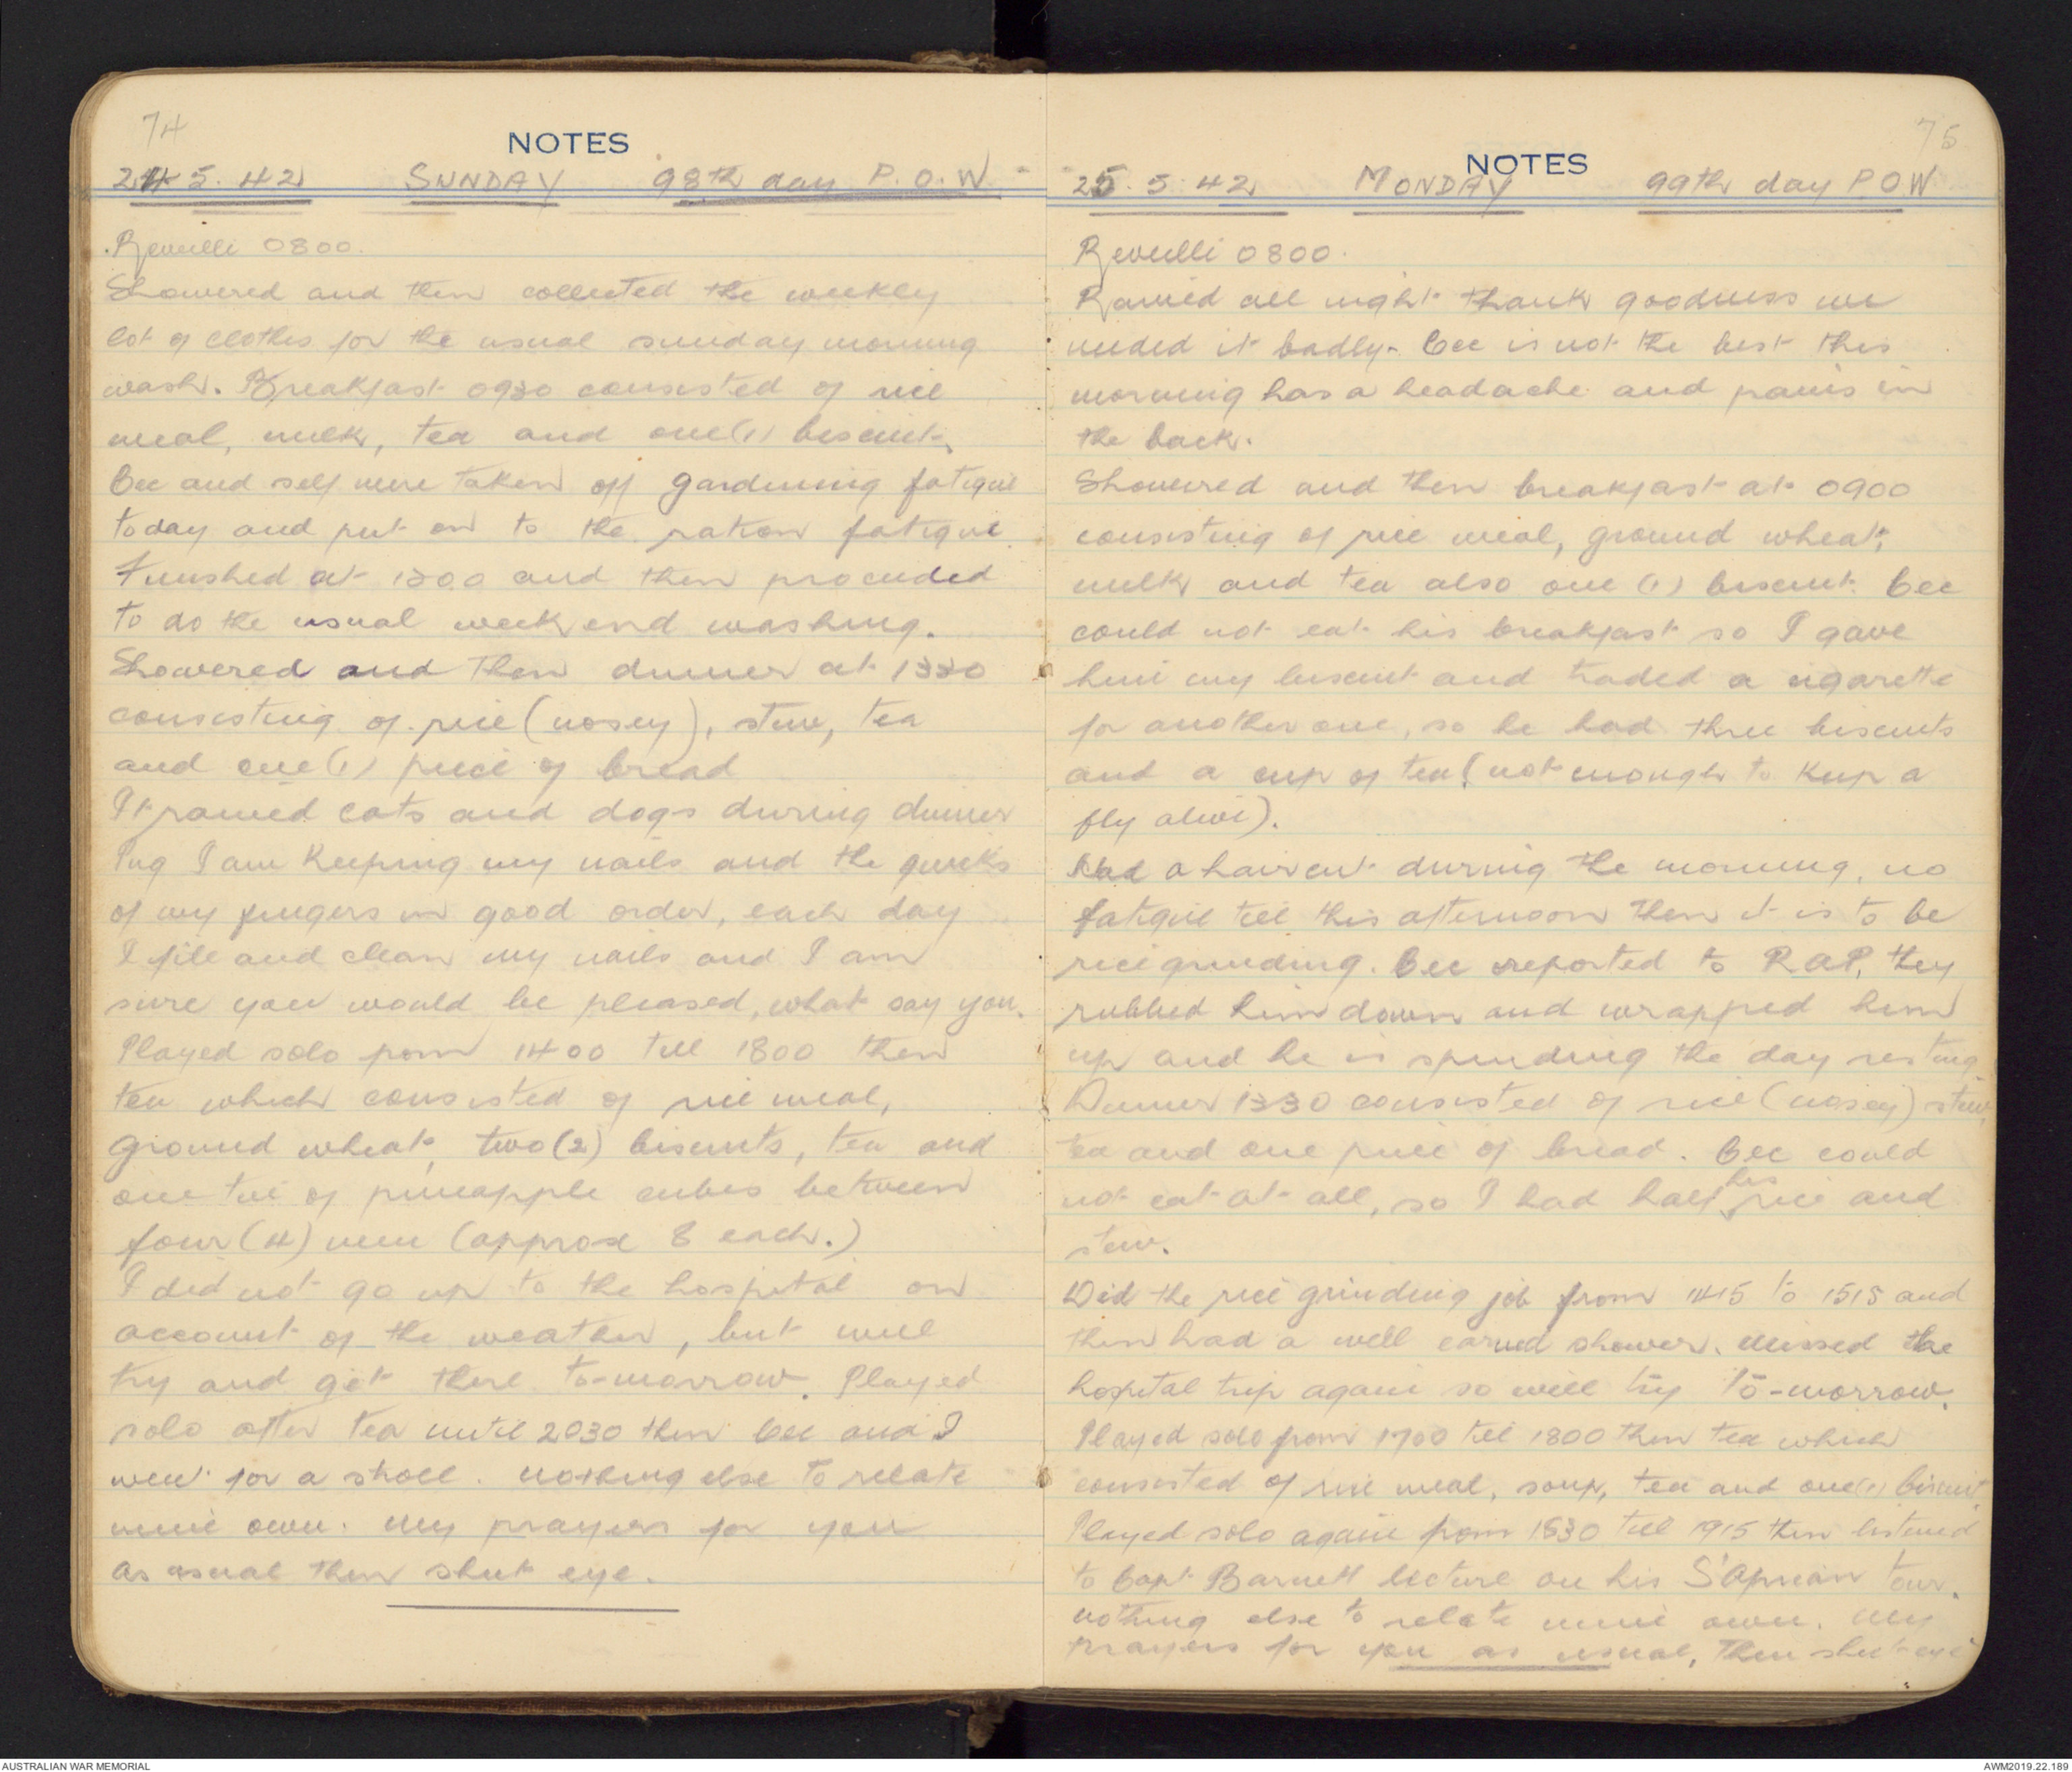 74
NOTES
24.5.42 SUNDAY 98th day P.O.W.
Revielli 0800.
Showered and then collected the weekly
lot of clothes for the usual sunday morning
wash. Breakfast 0930 consisted of rice
meal, milk, tea and one (1) biscuit.
Cec and self were taken off gardening fatigue
today and put on to the ration fatigue
Finished at 1300 and then proceeded
to do the usual week end washing.
Showered and then dinner at 1330
consisting of rice (nosey), stew, tea
and one (1) piece of bread
It rained cats and dogs during dinner
I am Keeping my nails and the quicks
of my fingers in good order, each day
I file and clean my nails and I am
sure you would be pleased, what say you.
Played solo from 1400 till 1800 then
tea which consisted of rice meal,
ground wheat, two (2) biscuits, tea and
one tin of pineapple cubes between
four (4) men (approx 8 each.)
I did not go up to the hospital on
account of the weather, but will
try and get there to-morrow. Played
solo after tea until 2030 then Cec and I
went for a stroll. nothing else to relate
mine own. My prayers for you
as usual then shut eye.
75
NOTES
25.5.42 MONDAY 99th day POW
Revielli 0800.
Rained all night thank goodness we
needed it badly. Cec is not the best this
morning has a headache and pains in
the back.
Showered and then breakfast at 0900
consisting of rice meal, ground wheat,
milk and tea also one (1) biscuit. Cec
could not eat his breakfast so I gave
him my biscuit and traded a cigarette
for another one, so he had three biscuits
and a cup of tea (not enough to Keep a
fly alive).
Had a haircut during the morning, no
fatigue till this afternoon then it is to be
rice grinding. Cec reported to R.A.P, they
rubbed him down and wrapped him
up and he is spending the day resting
Dinner 1330 consisted of rice (nosey) stew,
tea and one piece of bread. Cec could
not eat at all, so I had half his rice and
stew.
Did the rice grinding job from 1415 to 1515 and
then had a well earned shower. Missed the
hospital trip again so will try to-morrow.
Played solo from 1700 till 1800 then tea which
consisted of rice meal, soup, tea and one (1) biscuit
Played solo again from 1830 till 1915 then listened
to Capt Barnett lecture on his S'African tour.
nothing else to relate mine own. My
prayers for you as usual, then shut eye
AUSTRALIAN WAR MEMORIAL
AWM2019.22.189